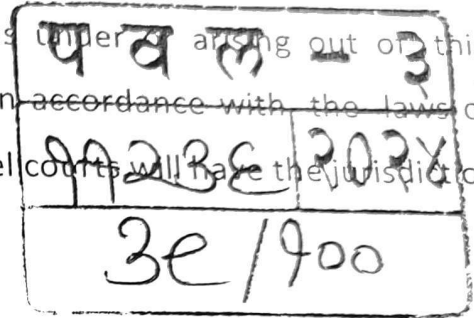 s under or arising out of thi
प व ल - ३
n accordance with the laws
el courts will have the jurisdictic
११२३६ २०२४
३९/१००